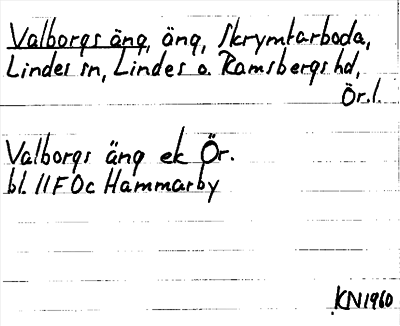 Valborgs äng, äng, Skrymtarboda,
Lindes sn, Lindes o. Ramsbergs hd,
Ör.l.
Valborgs äng ek Ör.
bl. 11F0c Hammarby
KN1960